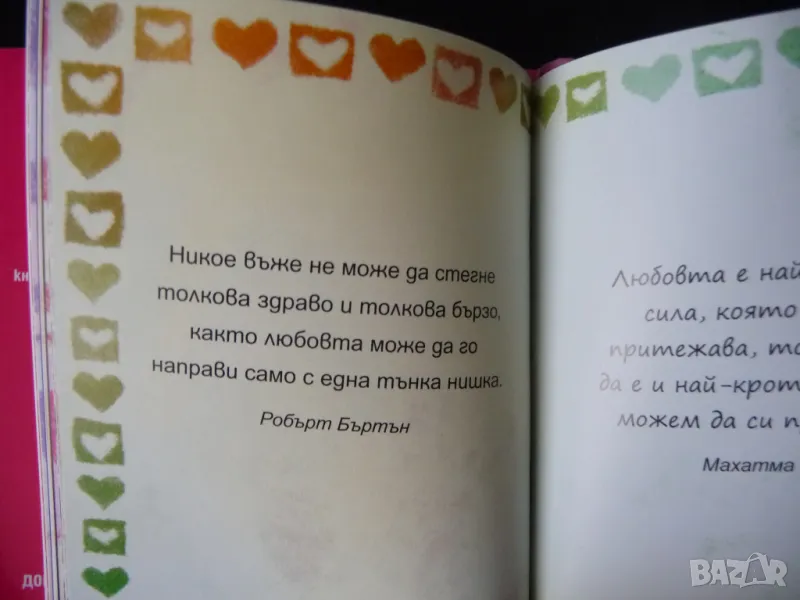 Никое въже не може да стегне
толкова здраво и толкова бързо,
както любовта може да го
направи само с една тънка нишка.
Робърт Бъртън
Любовта е най
сила, която
притежава, то
да е и най-крот
можем да си п
Махатма
кн
ДОБ
BAZAR